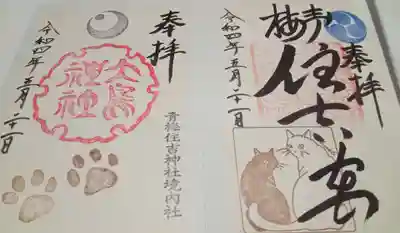 奉拝
青梅
住吉宮
令和四年五月二十一日
奉拝
青梅住吉神社境内社
大鳥神社
令和四年五月二十一日